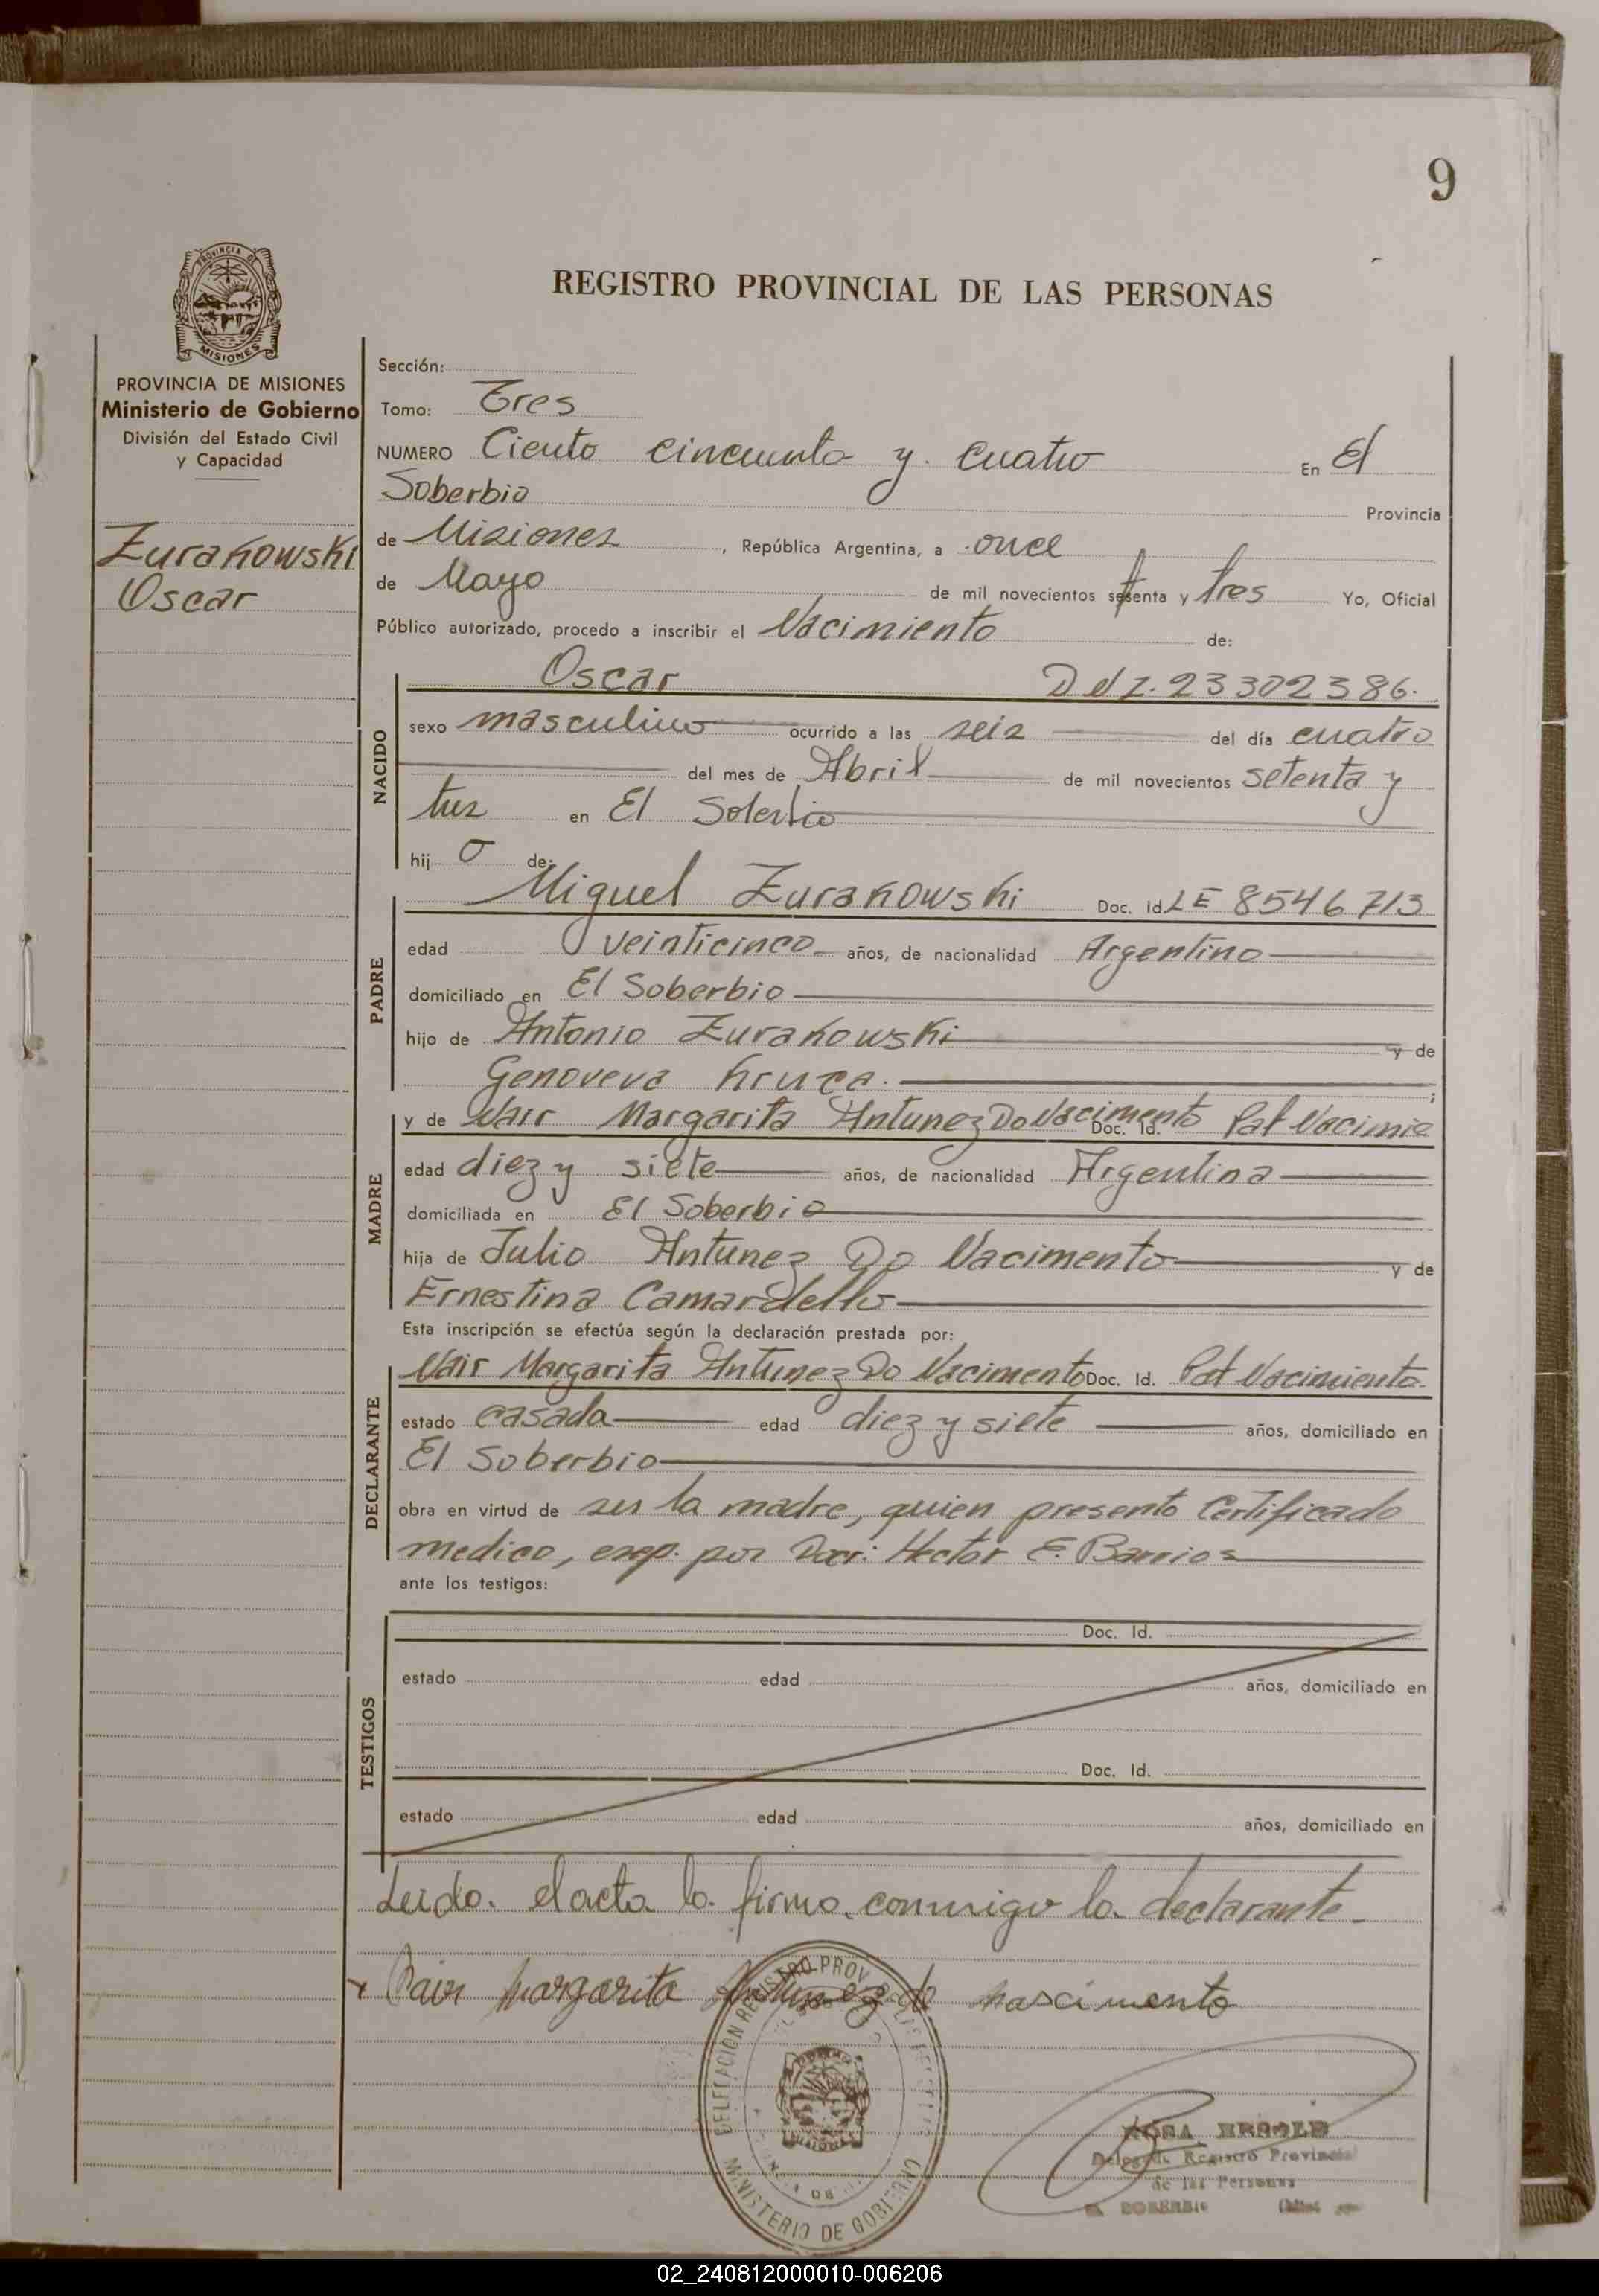 9
PROVINCIA DE
MISIONES
REGISTRO PROVINCIAL DE LAS PERSONAS
PROVINCIA DE MISIONES
Ministerio de Gobierno
División del Estado Civil
y Capacidad
Zurakowski
Oscar
Sección:
Tomo: Tres
NUMERO Ciento cincuenta y cuatro En El
Soberbio Provincia
de Misiones, República Argentina, a once
de Mayo de mil novecientos setenta y tres Yo, Oficial
Público autorizado, procedo a inscribir el Nacimiento de:
NACIDO
Oscar DNI. 23302386.
sexo masculino ocurrido a las seis del día cuatro
del mes de Abril de mil novecientos setenta y
tres en El Soberbio
hij o de:
PADRE
Miguel Zurakowski Doc. Id. LE 8546713
edad veinticinco años, de nacionalidad Argentino
domiciliado en El Soberbio
hijo de Antonio Zurakowski y de
Genoveva Kruca. ;
MADRE
y de Nair Margarita Antunez Do Nacimento Doc. Id. Pat Nacimie
edad diez y siete años, de nacionalidad Argentina
domiciliada en El Soberbio
hija de Julio Antunez Do Nacimento y de
Ernestina Camardello
Esta inscripción se efectúa según la declaración prestada por:
DECLARANTE
Nair Margarita Antunez Do Nacimento Doc. Id. Pat Nacimiento
estado casada edad diez y siete años, domiciliado en
El Soberbio
obra en virtud de ser la madre, quien presento Certificado
medico, exep. por Doct: Hector E. Barrios
ante los testigos:
TESTIGOS
Doc. Id.
estado edad años, domiciliado en
Doc. Id.
estado edad años, domiciliado en
Leido el acta la firma conmigo la declarante
Nair Margarita Antunez do nascimento
DELEGACION REGISTRO PROV. DE LAS PERSONAS
MINISTERIO DE GOBIERNO
ROSA
Delegada Registro Provincial
de las Personas
EL SOBERBIO
02_240812000010-006206